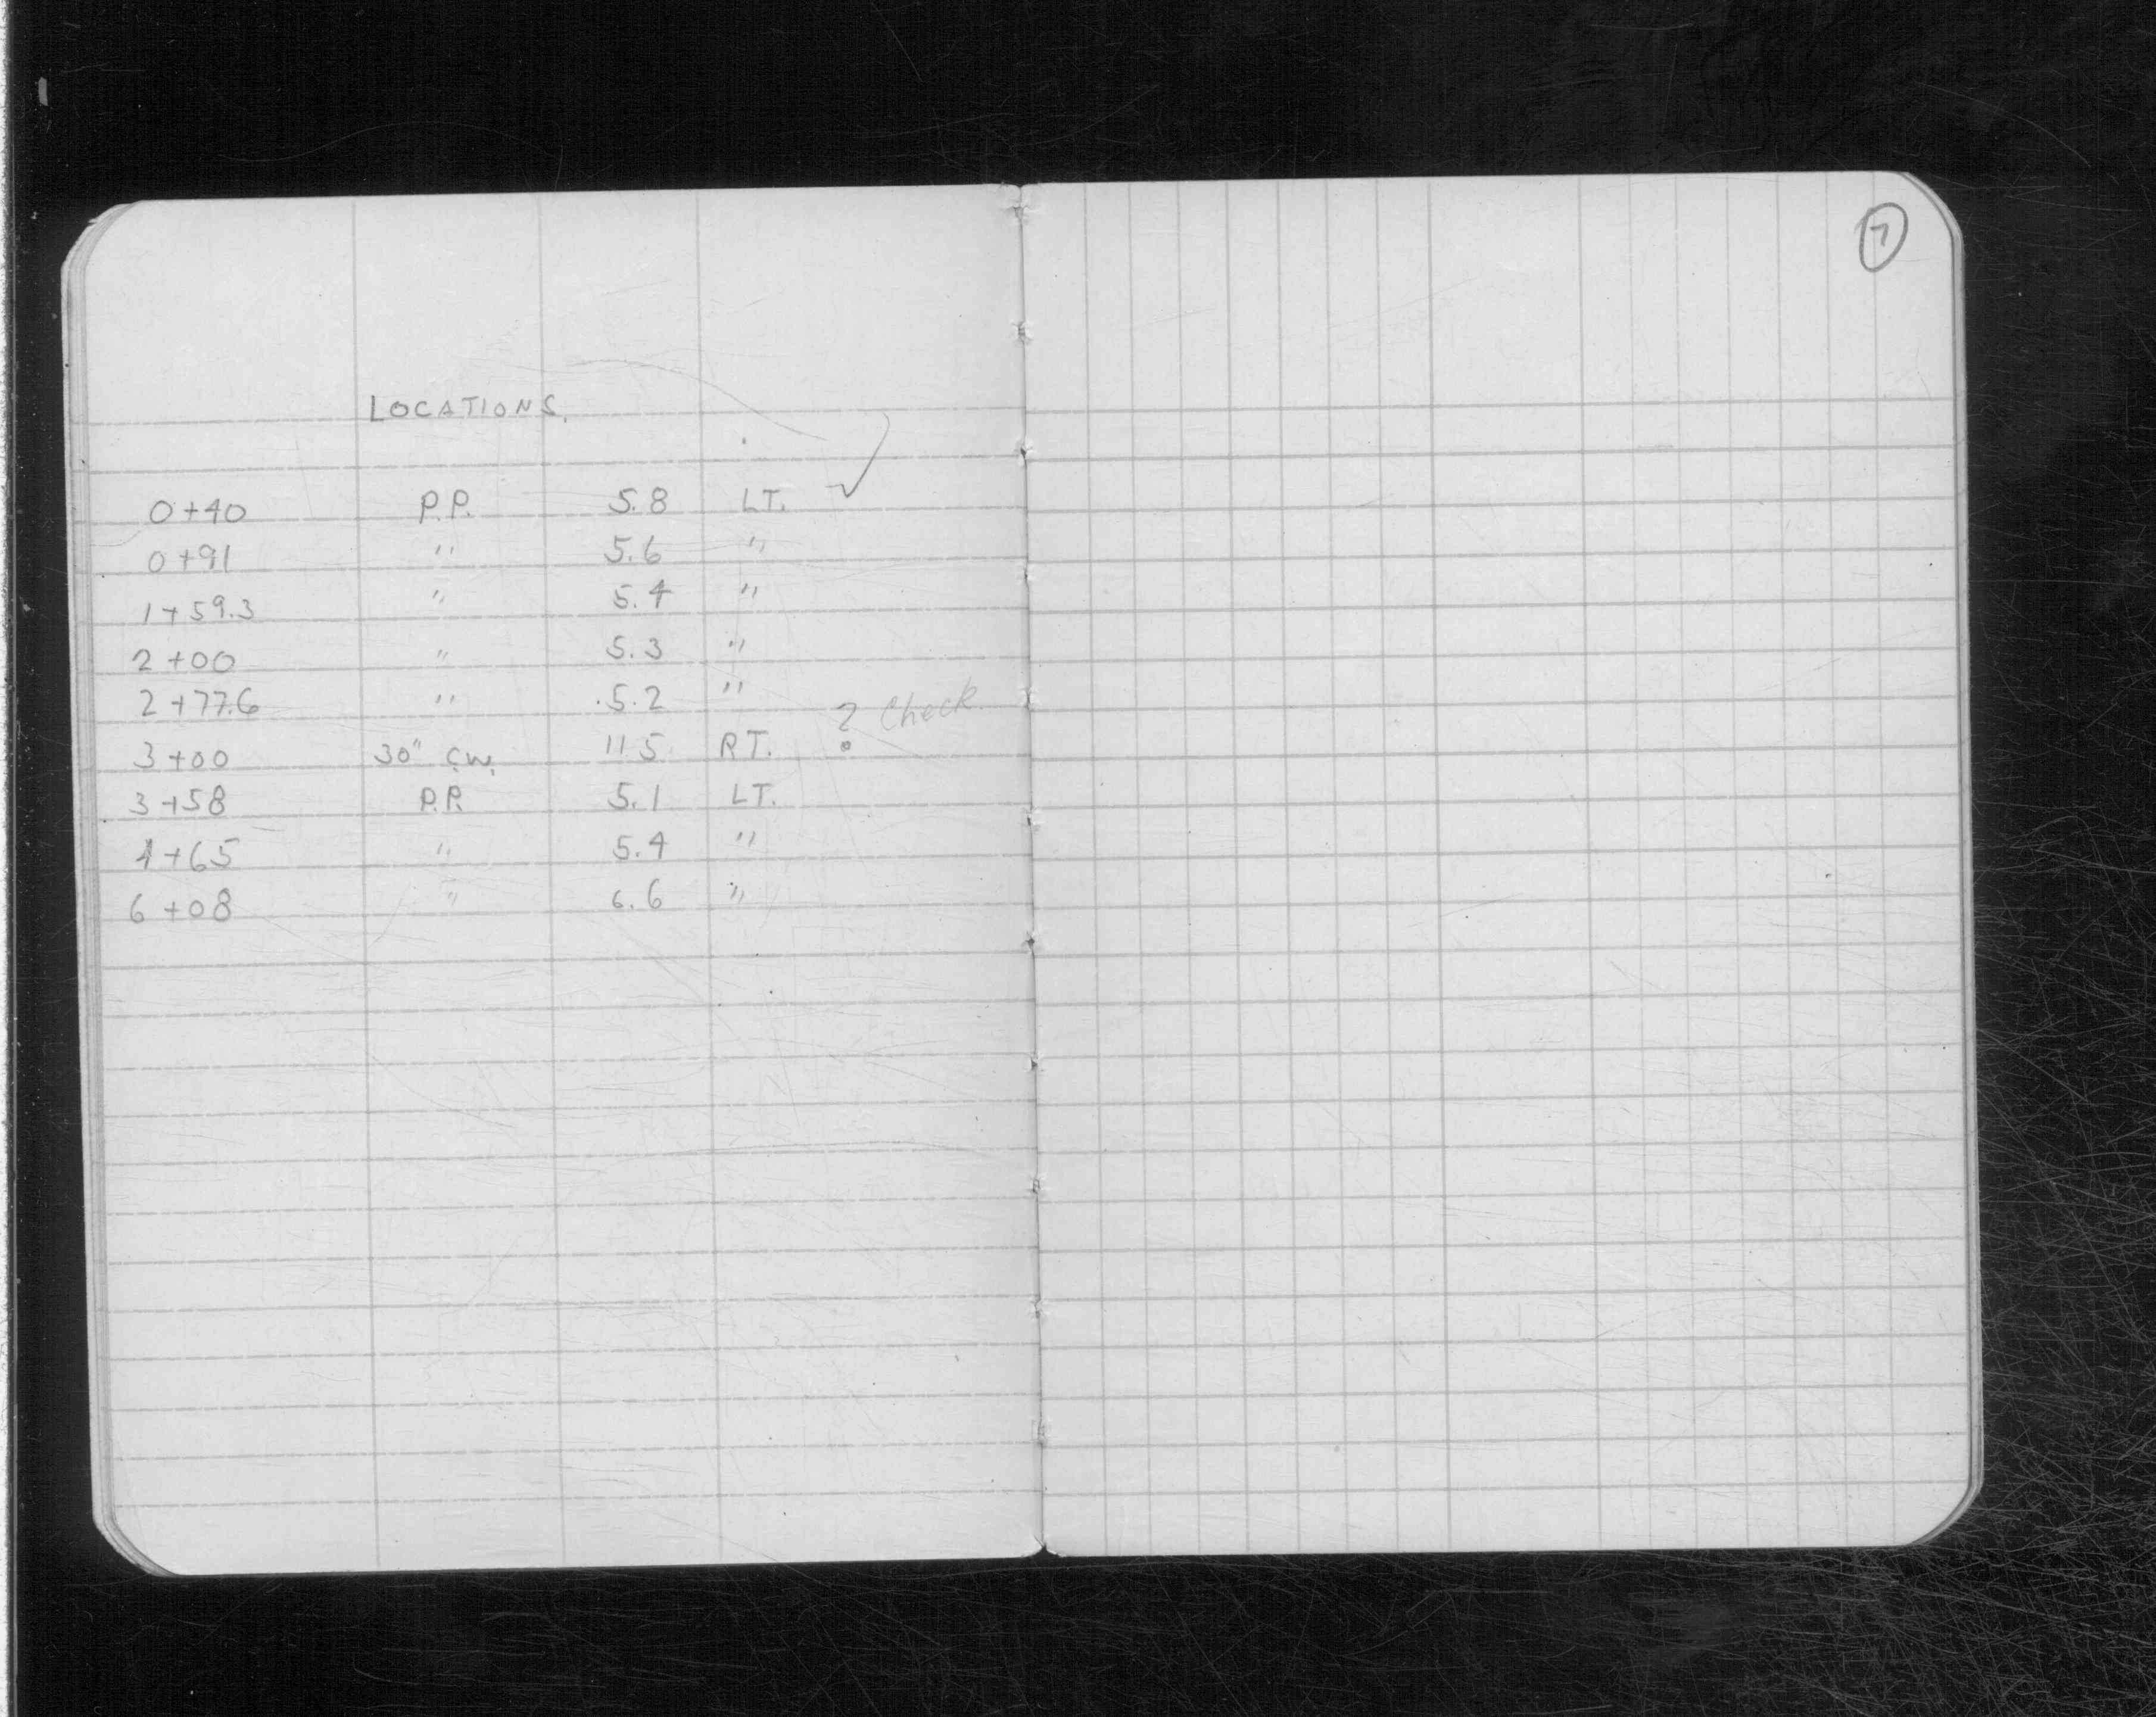 7
LOCATIONS.
0+40 P.P. 5.8 LT. ✓
0+91 " 5.6 "
1+59.3 " 5.4 "
2+00 " 5.3 "
2+77.6 " 5.2 "
3+00 30" C.W. 11.5 RT. ? Check
3+58 P.P. 5.1 LT.
4+65 " 5.4 "
6+08 " 6.6 "